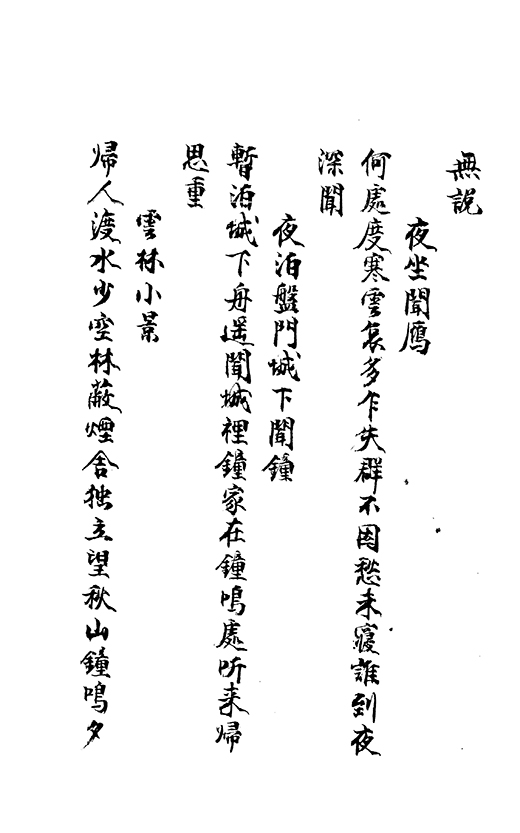 無説
夜坐聞鴈
何處度寒雲哀多乍失群不因愁未寢誰到夜
深聞
夜泊盤門城下聞鐘
暫泊城下舟遥聞城裡鐘家在鐘鳴處听来帰
思重
雲林小景
帰人渡水少空林蔽煙舎独立望秋山鐘鳴夕